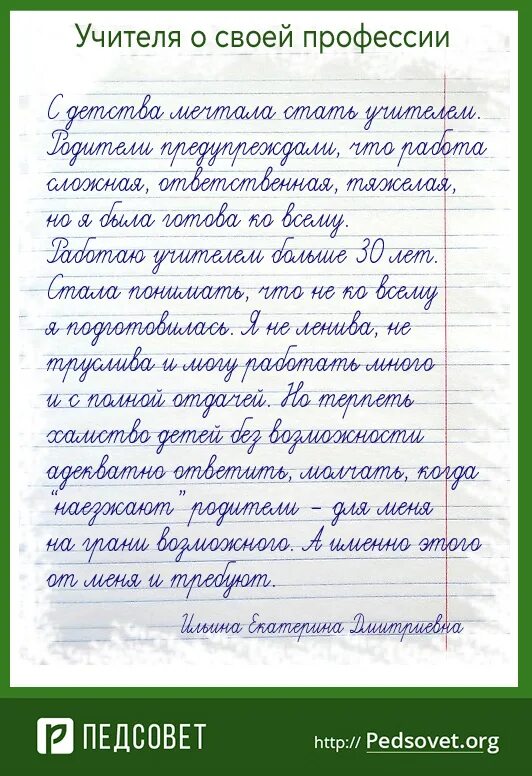 Учителя о своей профессии
С детства мечтала стать учителем.
Родители предупреждали, что работа
сложная, ответственная, тяжелая,
но я была готова ко всему.
Работаю учителем больше 30 лет.
Стала понимать, что не ко всему
я подготовилась. Я не ленива, не
труслива и могу работать много
и с полной отдачей. Но терпеть
хамство детей без возможности
адекватно ответить, молчать, когда
"наезжают" родители - для меня
на грани возможного. А именно этого
от меня и требуют.
Ильина Екатерина Дмитриевна
ПЕДСОВЕТ
http:// Pedsovet.org